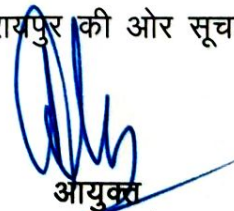 रायपुर की ओर सूच
आयुक्त